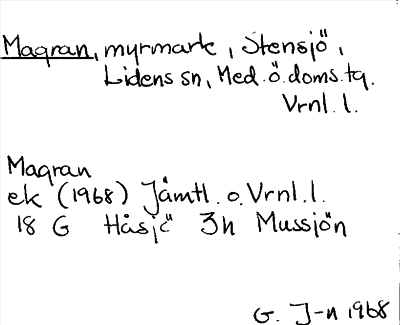 Magran, myrmark, Stensjö,
Lidens sn, Med.ö.doms.tg.
Vrnl.l.
Magran
ek (1968) Jämtl.o.Vrnl.l.
18 G Håsjö 3h Mussjön
G. J-n 1968